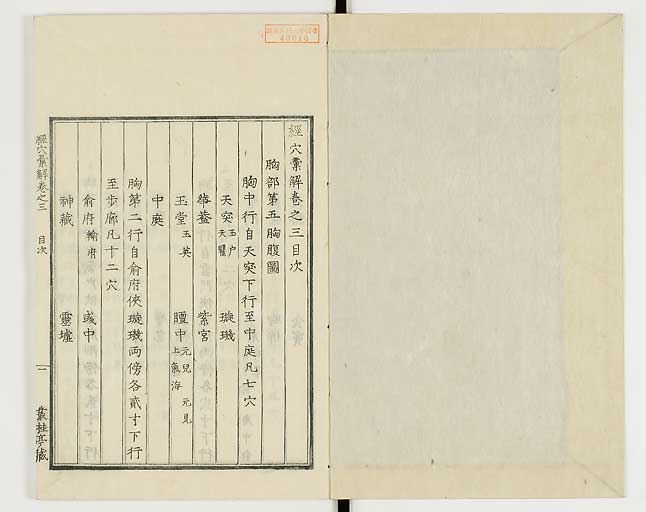 經穴彙解卷之三目次
胸部第五胸腹圖
胸中行自天突下行至中庭凡七穴
天突 玉户 天瞿 璇璣
華蓋 紫宮
玉堂 玉英 膻中 元兒 上氣海 元見
中庭
胸第二行自俞府俠璇璣兩傍各貳寸下行
至步廊凡十二穴
俞府 輸府 彧中
神藏 靈墟
經穴彙解卷之三 目次 一 叢桂亭藏